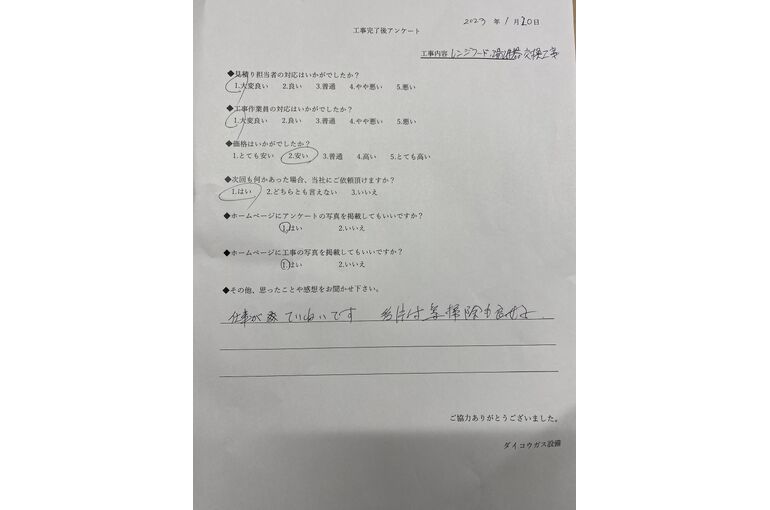 2023 年 1 月 20 日
工事完了後アンケート
工事内容 レンジフード、湯沸器交換工事
◆見積り担当者の対応はいかがでしたか？
1.大変良い 2.良い 3.普通 4.やや悪い 5.悪い
◆工事作業員の対応はいかがでしたか？
1.大変良い 2.良い 3.普通 4.やや悪い 5.悪い
◆価格はいかがでしたか？
1.とても安い 2.安い 3.普通 4.高い 5.とても高い
◆次回も何かあった場合、当社にご依頼頂けますか？
1.はい 2.どちらとも言えない 3.いいえ
◆ホームページにアンケートの写真を掲載してもいいですか？
1.はい 2.いいえ
◆ホームページに工事の写真を掲載してもいいですか？
1.はい 2.いいえ
◆その他、思ったことや感想をお聞かせ下さい。
仕事が ていねいです 掃除も
ご協力ありがとうございました。
ダイコウガス設備